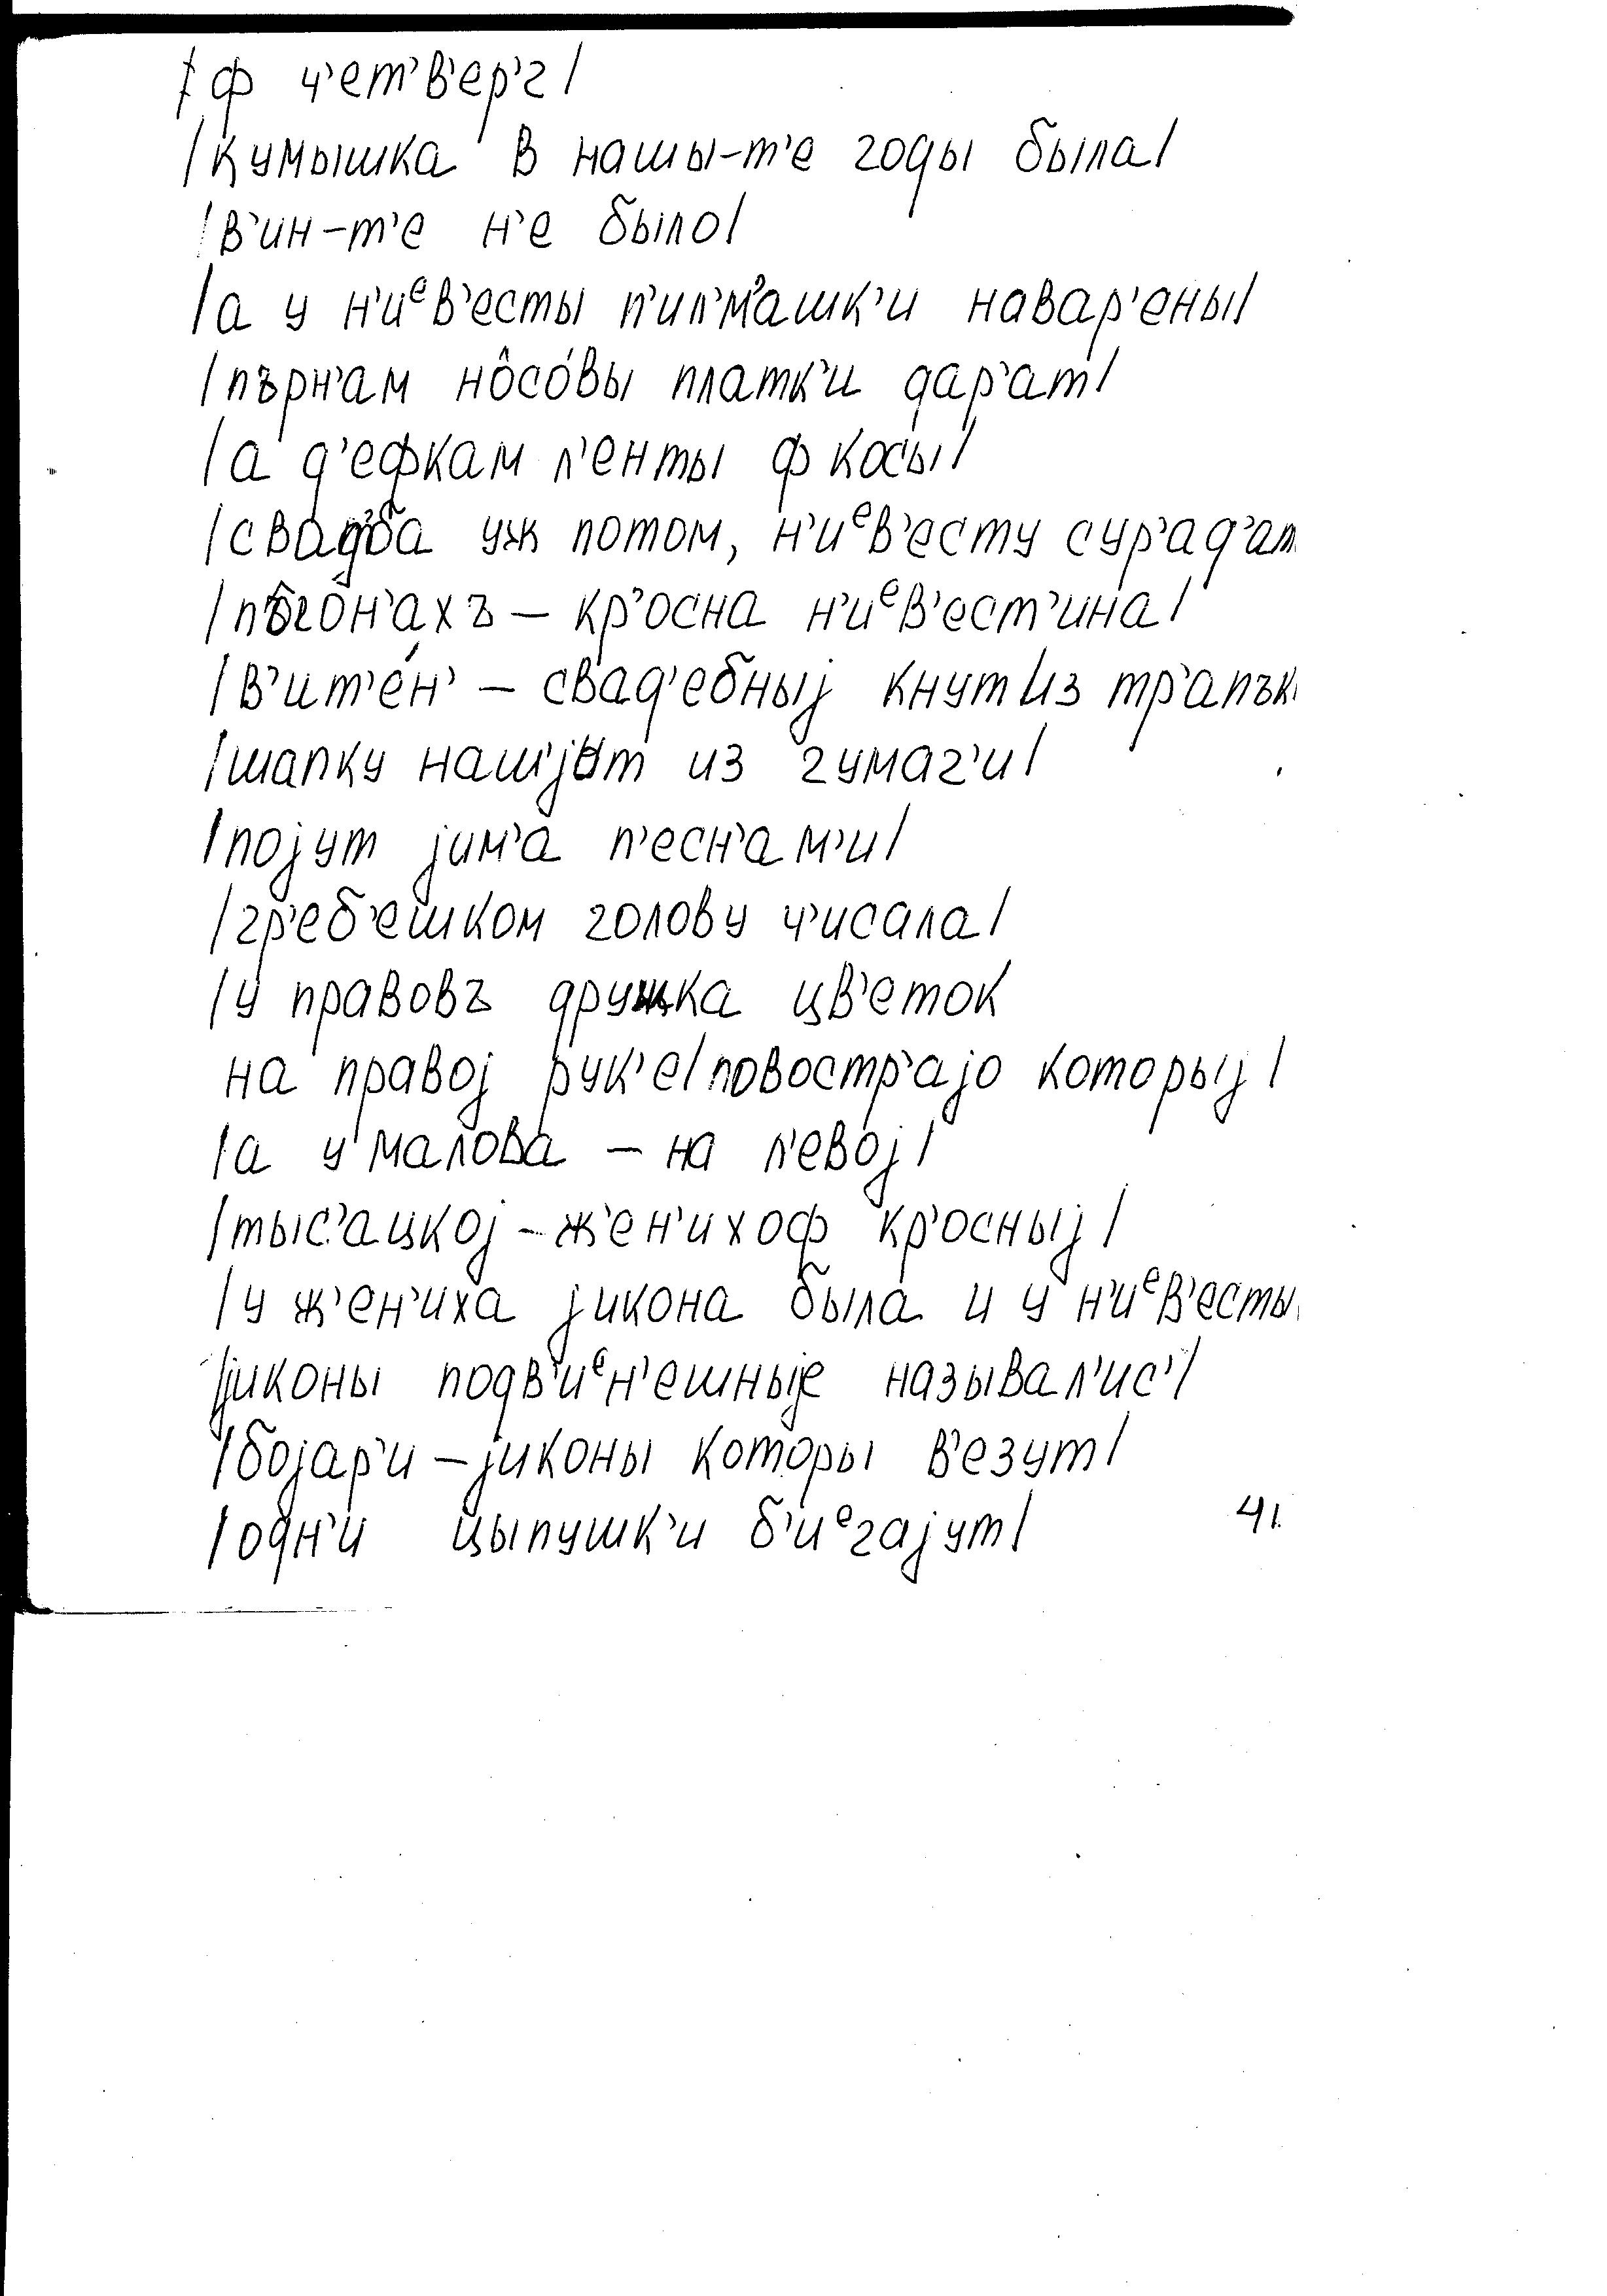 /ф ч'ет'в'ер'г/
/кумышка в нашы-т'е годы была/
/в'ин-т'е н'е было/
/а у н'иᵉв'есты п'ил'м'ашк'и навар'ены/
/пърн'ам но̂со́вы платк'и дар'ат/
/а д'ефкам л'енты ф косы/
/свад'ба уж потом, н'иᵉв'есту сур'ад'ат
/пъго̂н'ахъ – кр'осна н'иᵉв'ест'ина/
/в'ит'е́н' – свад'ебныј кнут/из тр'апък
/шапку наш'јут из гумаг'и/
/појут јим'а п'есн'ам'и/
/гр'еб'ешком голову ч'исала/
/у правовъ дружка цв'еток
на правој рук'е/повостр'ајо которыј/
/а у малова – на л'евој/
/тыс'ацкој – ж'ен'ихоф кр'осныј/
/у ж'ен'иха јикона была и у н'иᵉв'есты
/јиконы подв'иᵉн'ешныје называл'ис'/
/бојар'и – јиконы которы в'езут/
/одн'и цыпушк'и б'иᵉгајут/
41.